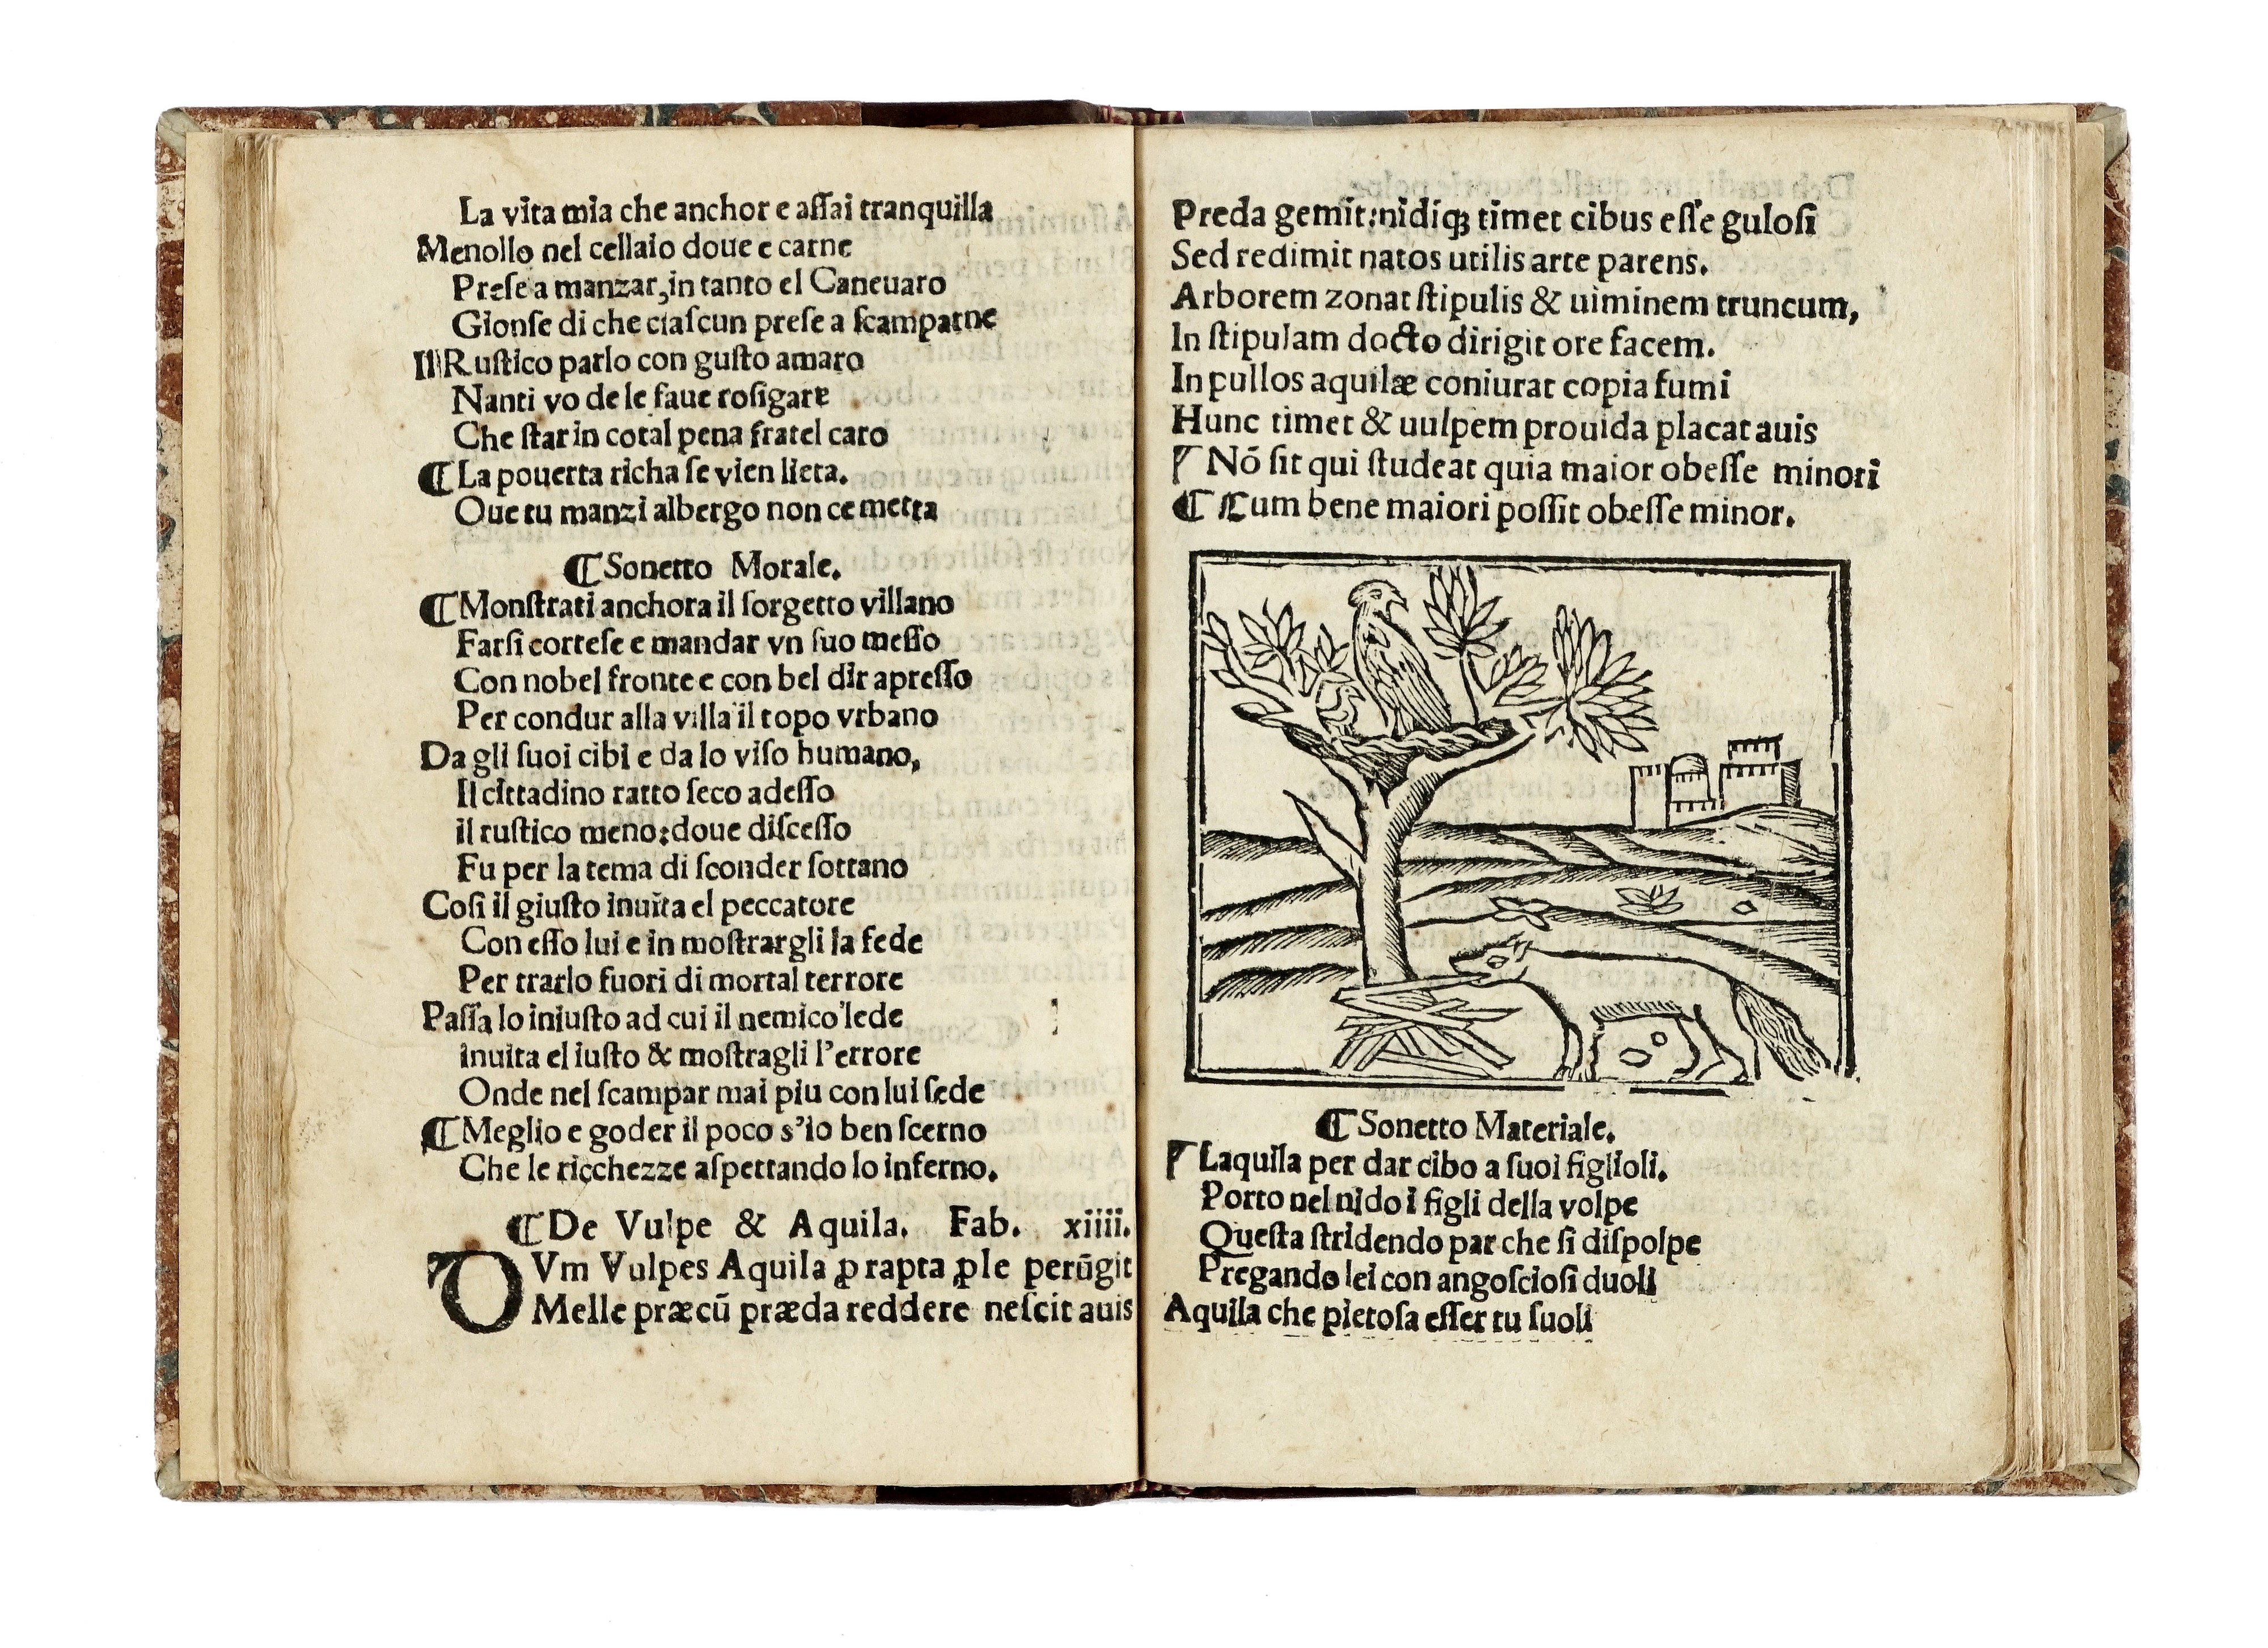 La vita mia che anchor e aſſai tranquilla
Menollo nel cellaio doue e carne
Preſe a manzar, in tanto el Caneuaro
Gionſe di che ciaſcun preſe a ſcamparne
Il Ruſtico parlo con guſto amaro
Nanti vo de le faue roſigare
Che ſtar in cotal pena fratel caro
¶ La pouerta richa ſe vien lieta.
Oue tu manzi albergo non ce metta
¶ Sonetto Morale.
¶ Monſtrati anchora il ſorgetto villano
Farſi corteſe e mandar vn ſuo meſſo
Con nobel fronte e con bel dir apreſſo
Per condur alla villa il topo vrbano
Da gli ſuoi cibi e da lo viſo humano,
Il cittadino ratto ſeco adeſſo
il ruſtico meno: doue diſceſſo
Fu per la tema di ſconder ſottano
Coſi il giuſto inuita el peccatore
Con eſſo lui e in moſtrargli la fede
Per trarlo fuori di mortal terrore
Paſſa lo iniuſto ad cui il nemico lede
inuita el iuſto & moſtragli l'errore
Onde nel ſcampar mai piu con lui ſede
¶ Meglio e goder il poco s'io ben ſcerno
Che le ricchezze aſpettando lo inferno.
¶ De Vulpe & Aquila. Fab. xiiii.
DVm Vulpes Aquila ꝓ rapta ꝓle perūgit
Melle præcū præda reddere neſcit auis
Preda gemit: nidiqꝫ timet cibus eſſe guloſi
Sed redimit natos utilis arte parens.
Arborem zonat ſtipulis & uiminem truncum,
In ſtipulam docto dirigit ore facem.
In pullos aquilæ coniurat copia fumi
Hunc timet & uulpem prouida placat auis
¶ Nō ſit qui ſtudeat quia maior obeſſe minori
¶ Cum bene maiori poſſit obeſſe minor.
¶ Sonetto Materiale.
¶ Laquila per dar cibo a ſuoi figlioli.
Porto nel nido i figli della volpe
Queſta ſtridendo par che ſi diſpolpe
Pregando lei con angoſcioſi duoli
Aquila che pietoſa eſſer tu ſuoli